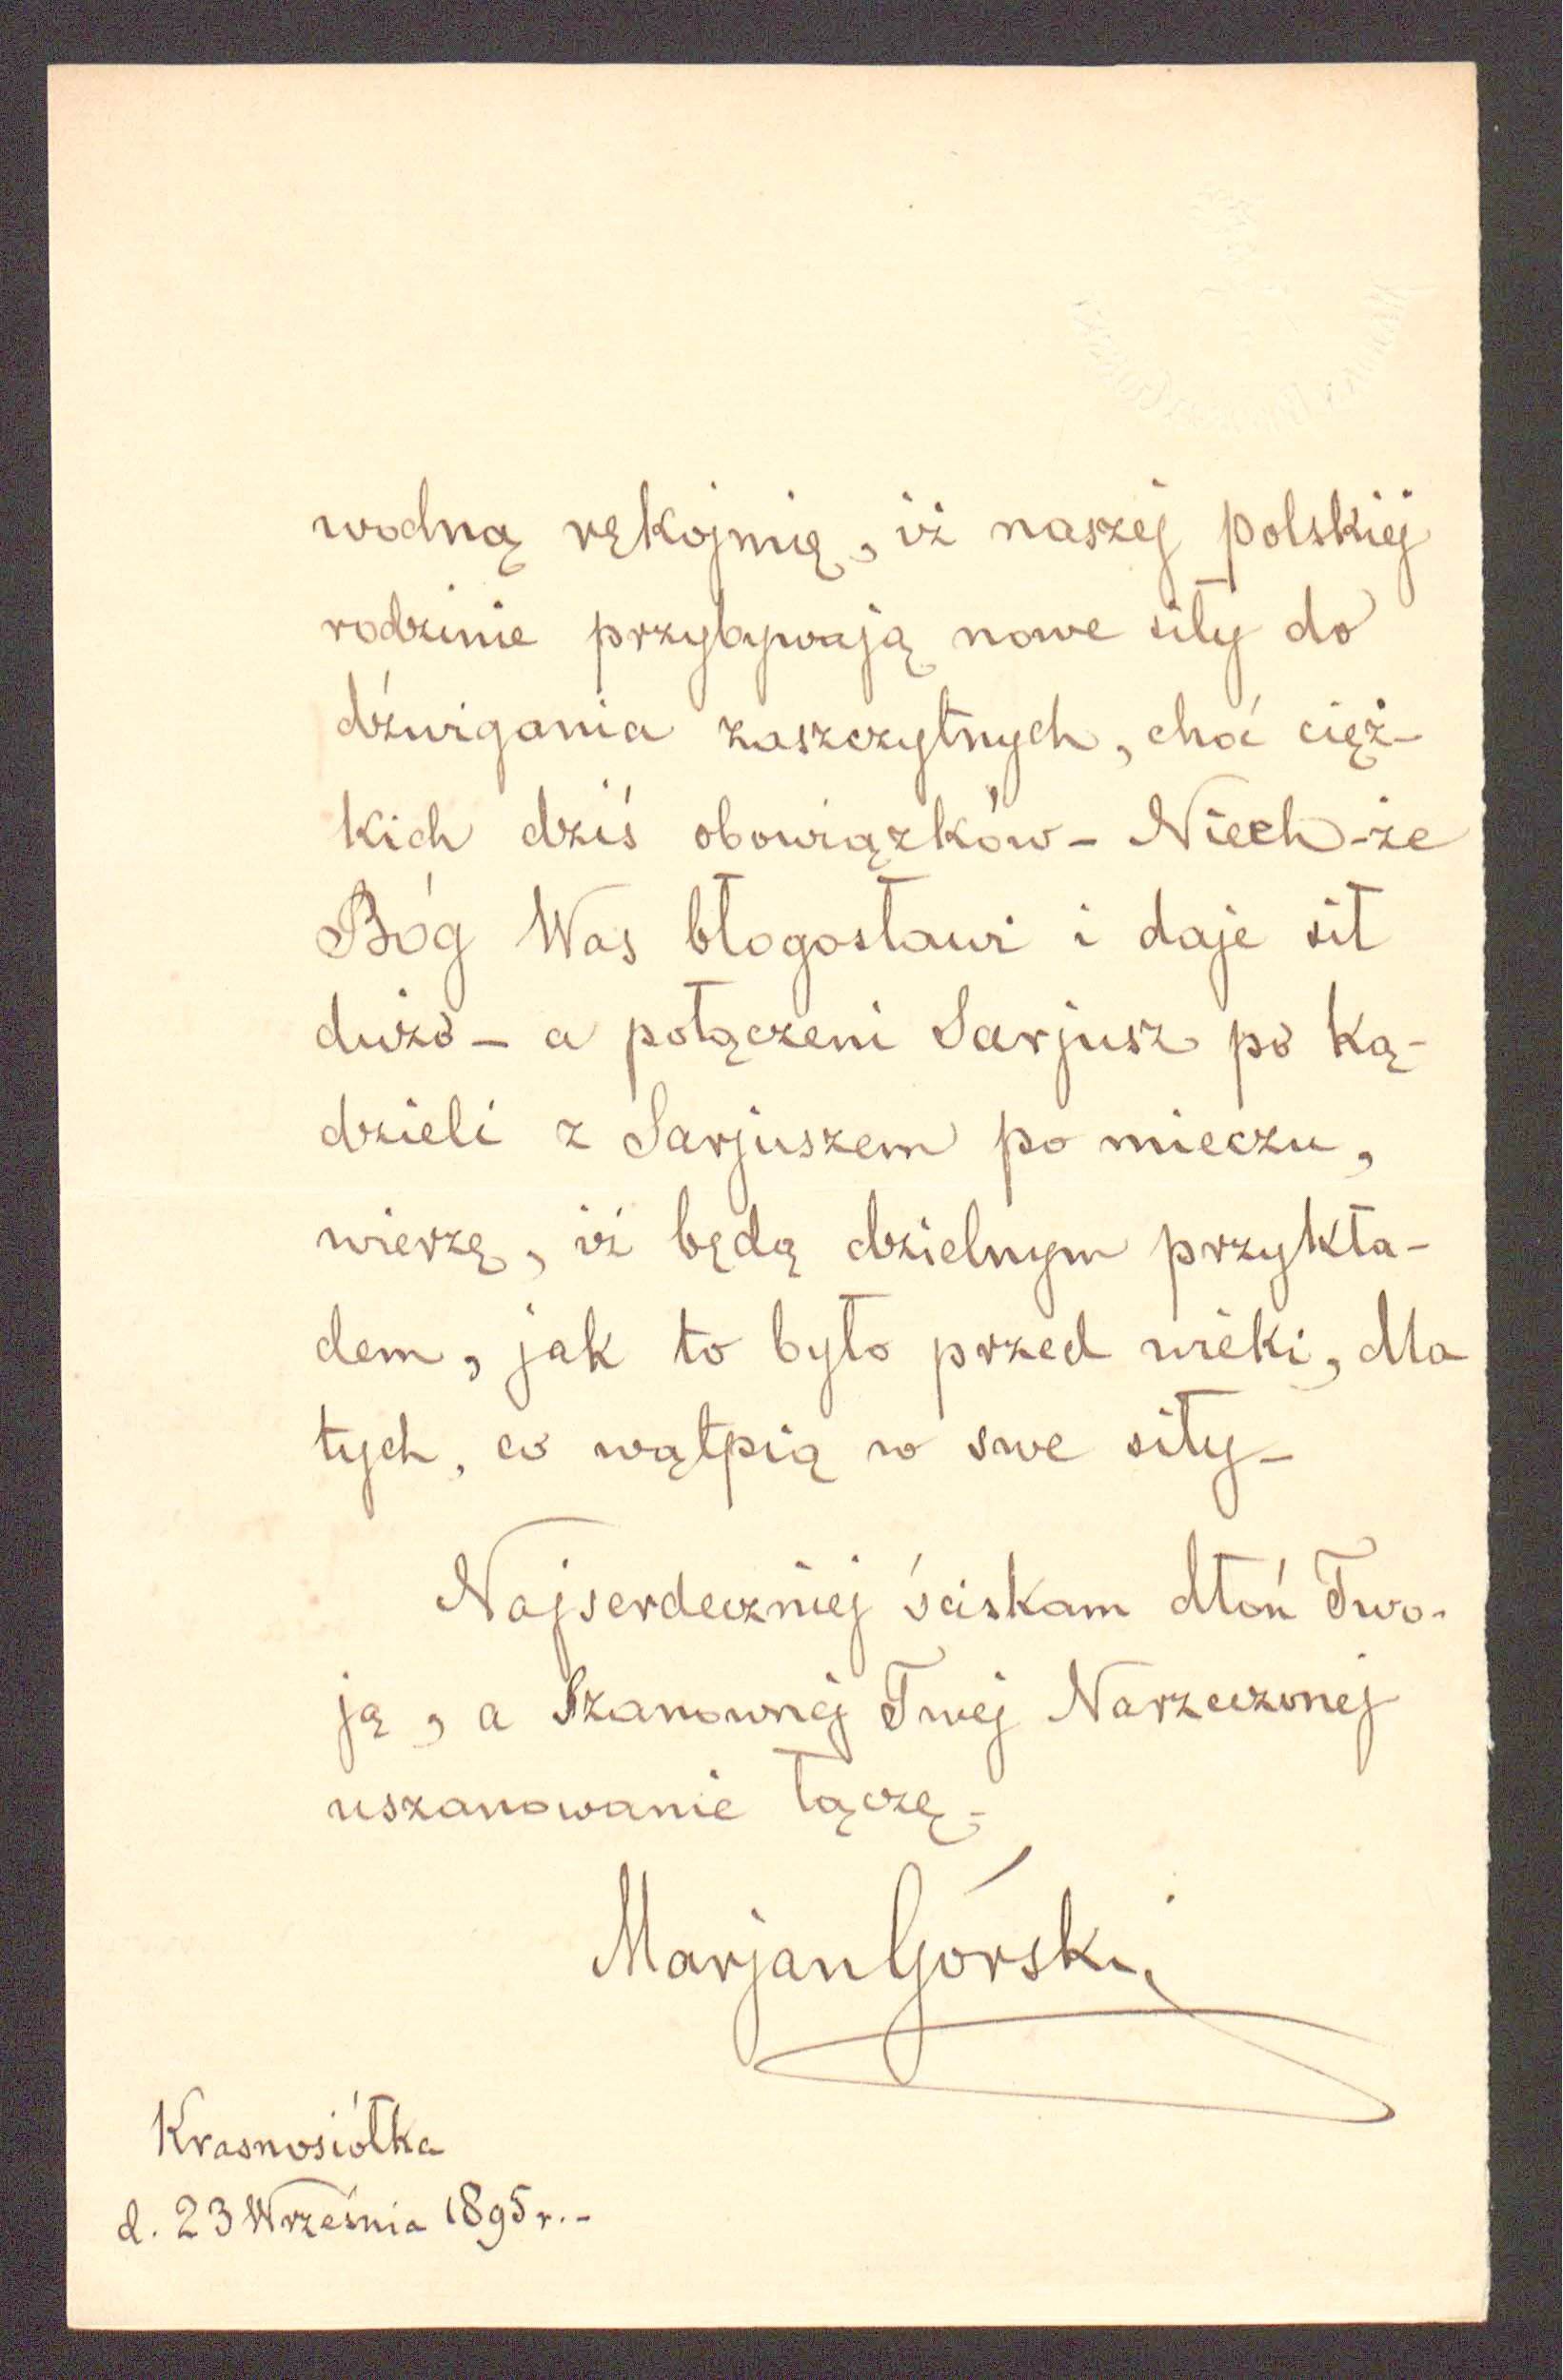 wodną rękojmię, iż naszej polskiej
rodzinie przybywają nowe siły do
dźwigania zaszczytnych, choć cięż-
kich dziś obowiązków - Niech-że
Bóg Was błogosławi i daje sił
dużo - a połączeni Sarjusz po ką-
dzieli z Sarjuszem po mieczu,
wierzę, iż będą dzielnym przykła-
dem, jak to było przed wieki, dla
tych, co wątpią w swe siły -
Najserdeczniej ściskam dłoń Two-
ją, a Szanownej Twej Narzeczonej
uszanowanie łączę -
Marjan Górski
Krasnosiółka
d. 23 Września 1895 r. -